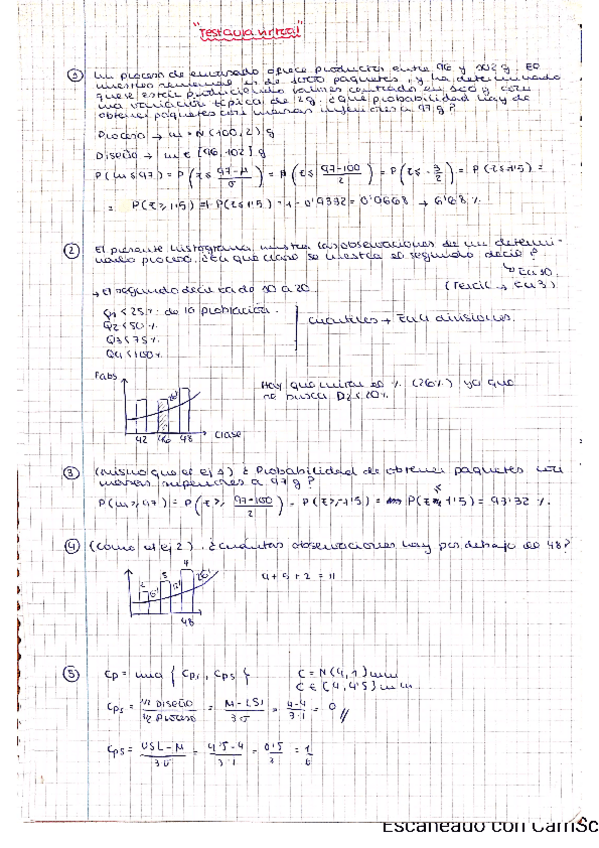 "Test aula virtual"
① Un proceso de envasado ofrece productos entre 96 y 102 g. Se
de 1000 paquetes, y ha determinado
que se están produciendo valores centrados en 100 y con
una variación típica de 2g. ¿Qué probabilidad hay de
obtener paquetes con masas inferiores a 97 g?
Proceso → m = N(100, 2) g
Diseño → m ∈ [96, 102] g
P(m ≤ 97) = P(z ≤ (97-μ)/σ) = P(z ≤ (97-100)/2) = P(z ≤ -3/2) = P(z ≤ -1'5) =
= P(z ≥ 1'5) = 1 - P(z ≤ 1'5) = 1 - 0'9332 = 0'0668 → 6'68 %.
② El presente histograma muestra las observaciones de un determi-
nado proceso. ¿En qué clase se muestra el segundo decil?
↳ En 10.
→ El segundo decil va de 10 a 20. (Tercil → En 3)
Q1 < 25% de la población.
Q2 < 50%
Q3 < 75%
Q4 < 100%
cuartiles → En 4 divisiones.
Fabs
Hay que mirar el % (26%) ya que
se busca D2 < 20%
42 46 48 clase
③ (mismo que el ej 1) ¿Probabilidad de obtener paquetes con
masas superiores a 97 g?
P(m ≥ 97) = P(z ≥ (97-100)/2) = P(z ≥ -1'5) = P(z ≤ 1'5) = 93'32 %.
④ (Como el ej 2). ¿Cuántas observaciones hay por debajo de 48?
2 5 4
4 + 5 + 2 = 11
48
⑤ Cp = { Cpi, Cps } C = N(4, 1) mm
C ∈ [4, 4'5] mm
= (1/2 Diseño)/(1/2 Proceso) = (M - LSI)/3σ = (4-4)/3·1 = 0 //
Cps = (USL - M)/3σ = (4'5-4)/3·1 = 0'5/3 = 1/6
Escaneado con CamSc